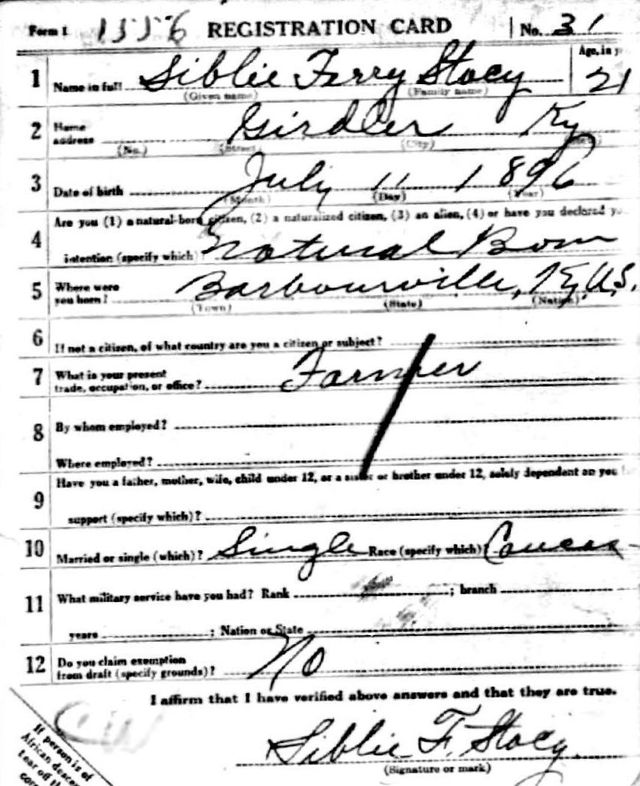 Form 1 1556 REGISTRATION CARD No. 31
1 Name in full Siblie Ferry Stacy Age, in y 21
(Given name) (Family name)
2 Home address Girdler Ky
(No.) (Street) (City) (State)
3 Date of birth July 11 1896
(Month) (Day) (Year)
4 Are you (1) a natural-born citizen, (2) a naturalized citizen, (3) an alien, (4) or have you declared y
intention (specify which) Natural Born
5 Where were you born? Barbourville, Ky, U.S.
(Town) (State) (Nation)
6 If not a citizen, of what country are you a citizen or subject?
7 What is your present trade, occupation, or office? Farmer
8 By whom employed?
Where employed?
9 Have you a father, mother, wife, child under 12, or a sister or brother under 12, solely dependent on you
support (specify which)?
10 Married or single (which)? Single Race (specify which) Caucas
11 What military service have you had? Rank ; branch
years ; Nation or State
12 Do you claim exemption from draft (specify grounds)? No
I affirm that I have verified above answers and that they are true.
Siblie F. Stacy
(Signature or mark)
If person is of
African desce
tear off th